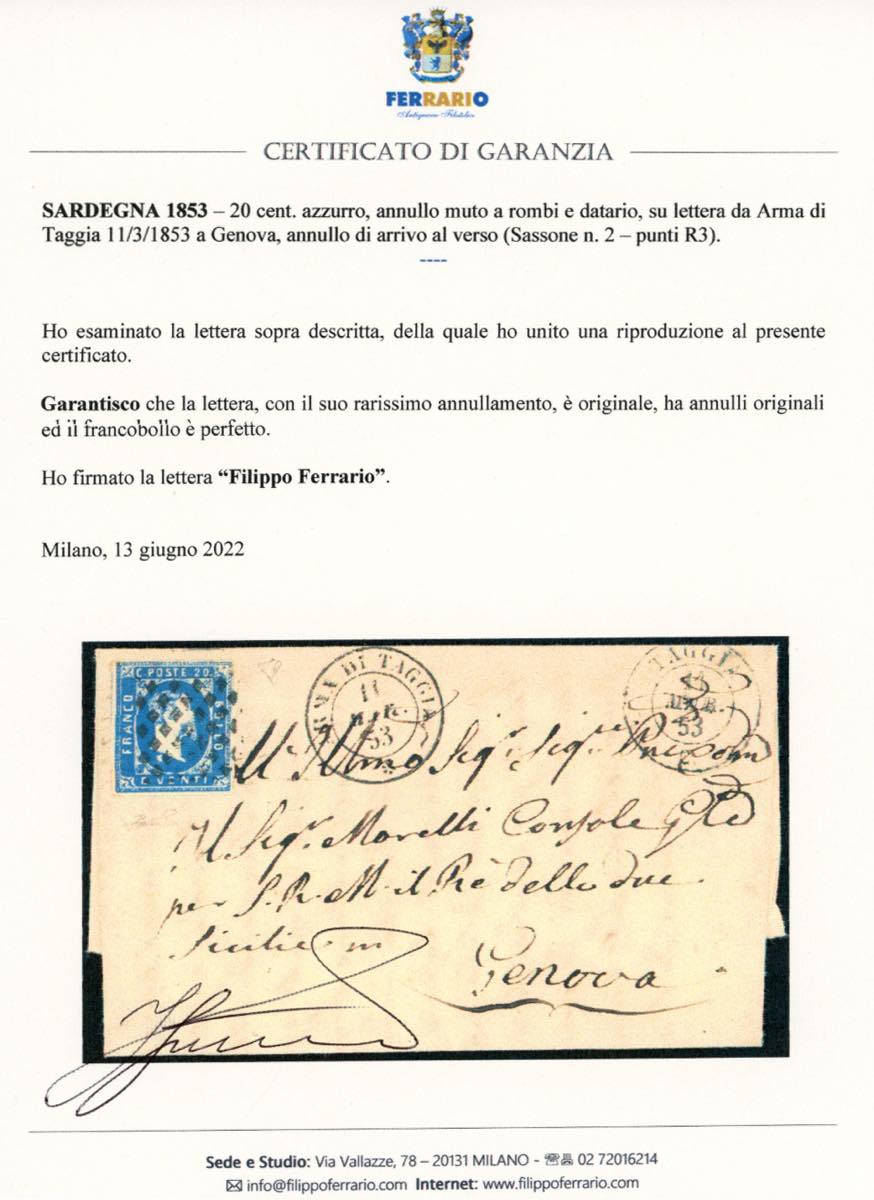 FERRARIO
Antiquariato Filatelico
CERTIFICATO DI GARANZIA
SARDEGNA 1853 – 20 cent. azzurro, annullo muto a rombi e datario, su lettera da Arma di
Taggia 11/3/1853 a Genova, annullo di arrivo al verso (Sassone n. 2 – punti R3).
----
Ho esaminato la lettera sopra descritta, della quale ho unito una riproduzione al presente
certificato.
Garantisco che la lettera, con il suo rarissimo annullamento, è originale, ha annulli originali
ed il francobollo è perfetto.
Ho firmato la lettera “Filippo Ferrario”.
Milano, 13 giugno 2022
C POSTE 20
FRANCO
BOLLO
C VENTI
ARMA DI TAGGIA
11
53
TAGGIA
MAR.
53
Sigr. Sigr.
Il Sigr. Morelli Console Gle
per S. R. M. il Rè delle due
Sicilie in
Genova
Sede e Studio: Via Vallazze, 78 – 20131 MILANO - 02 72016214
info@filippoferrario.com Internet: www.filippoferrario.com